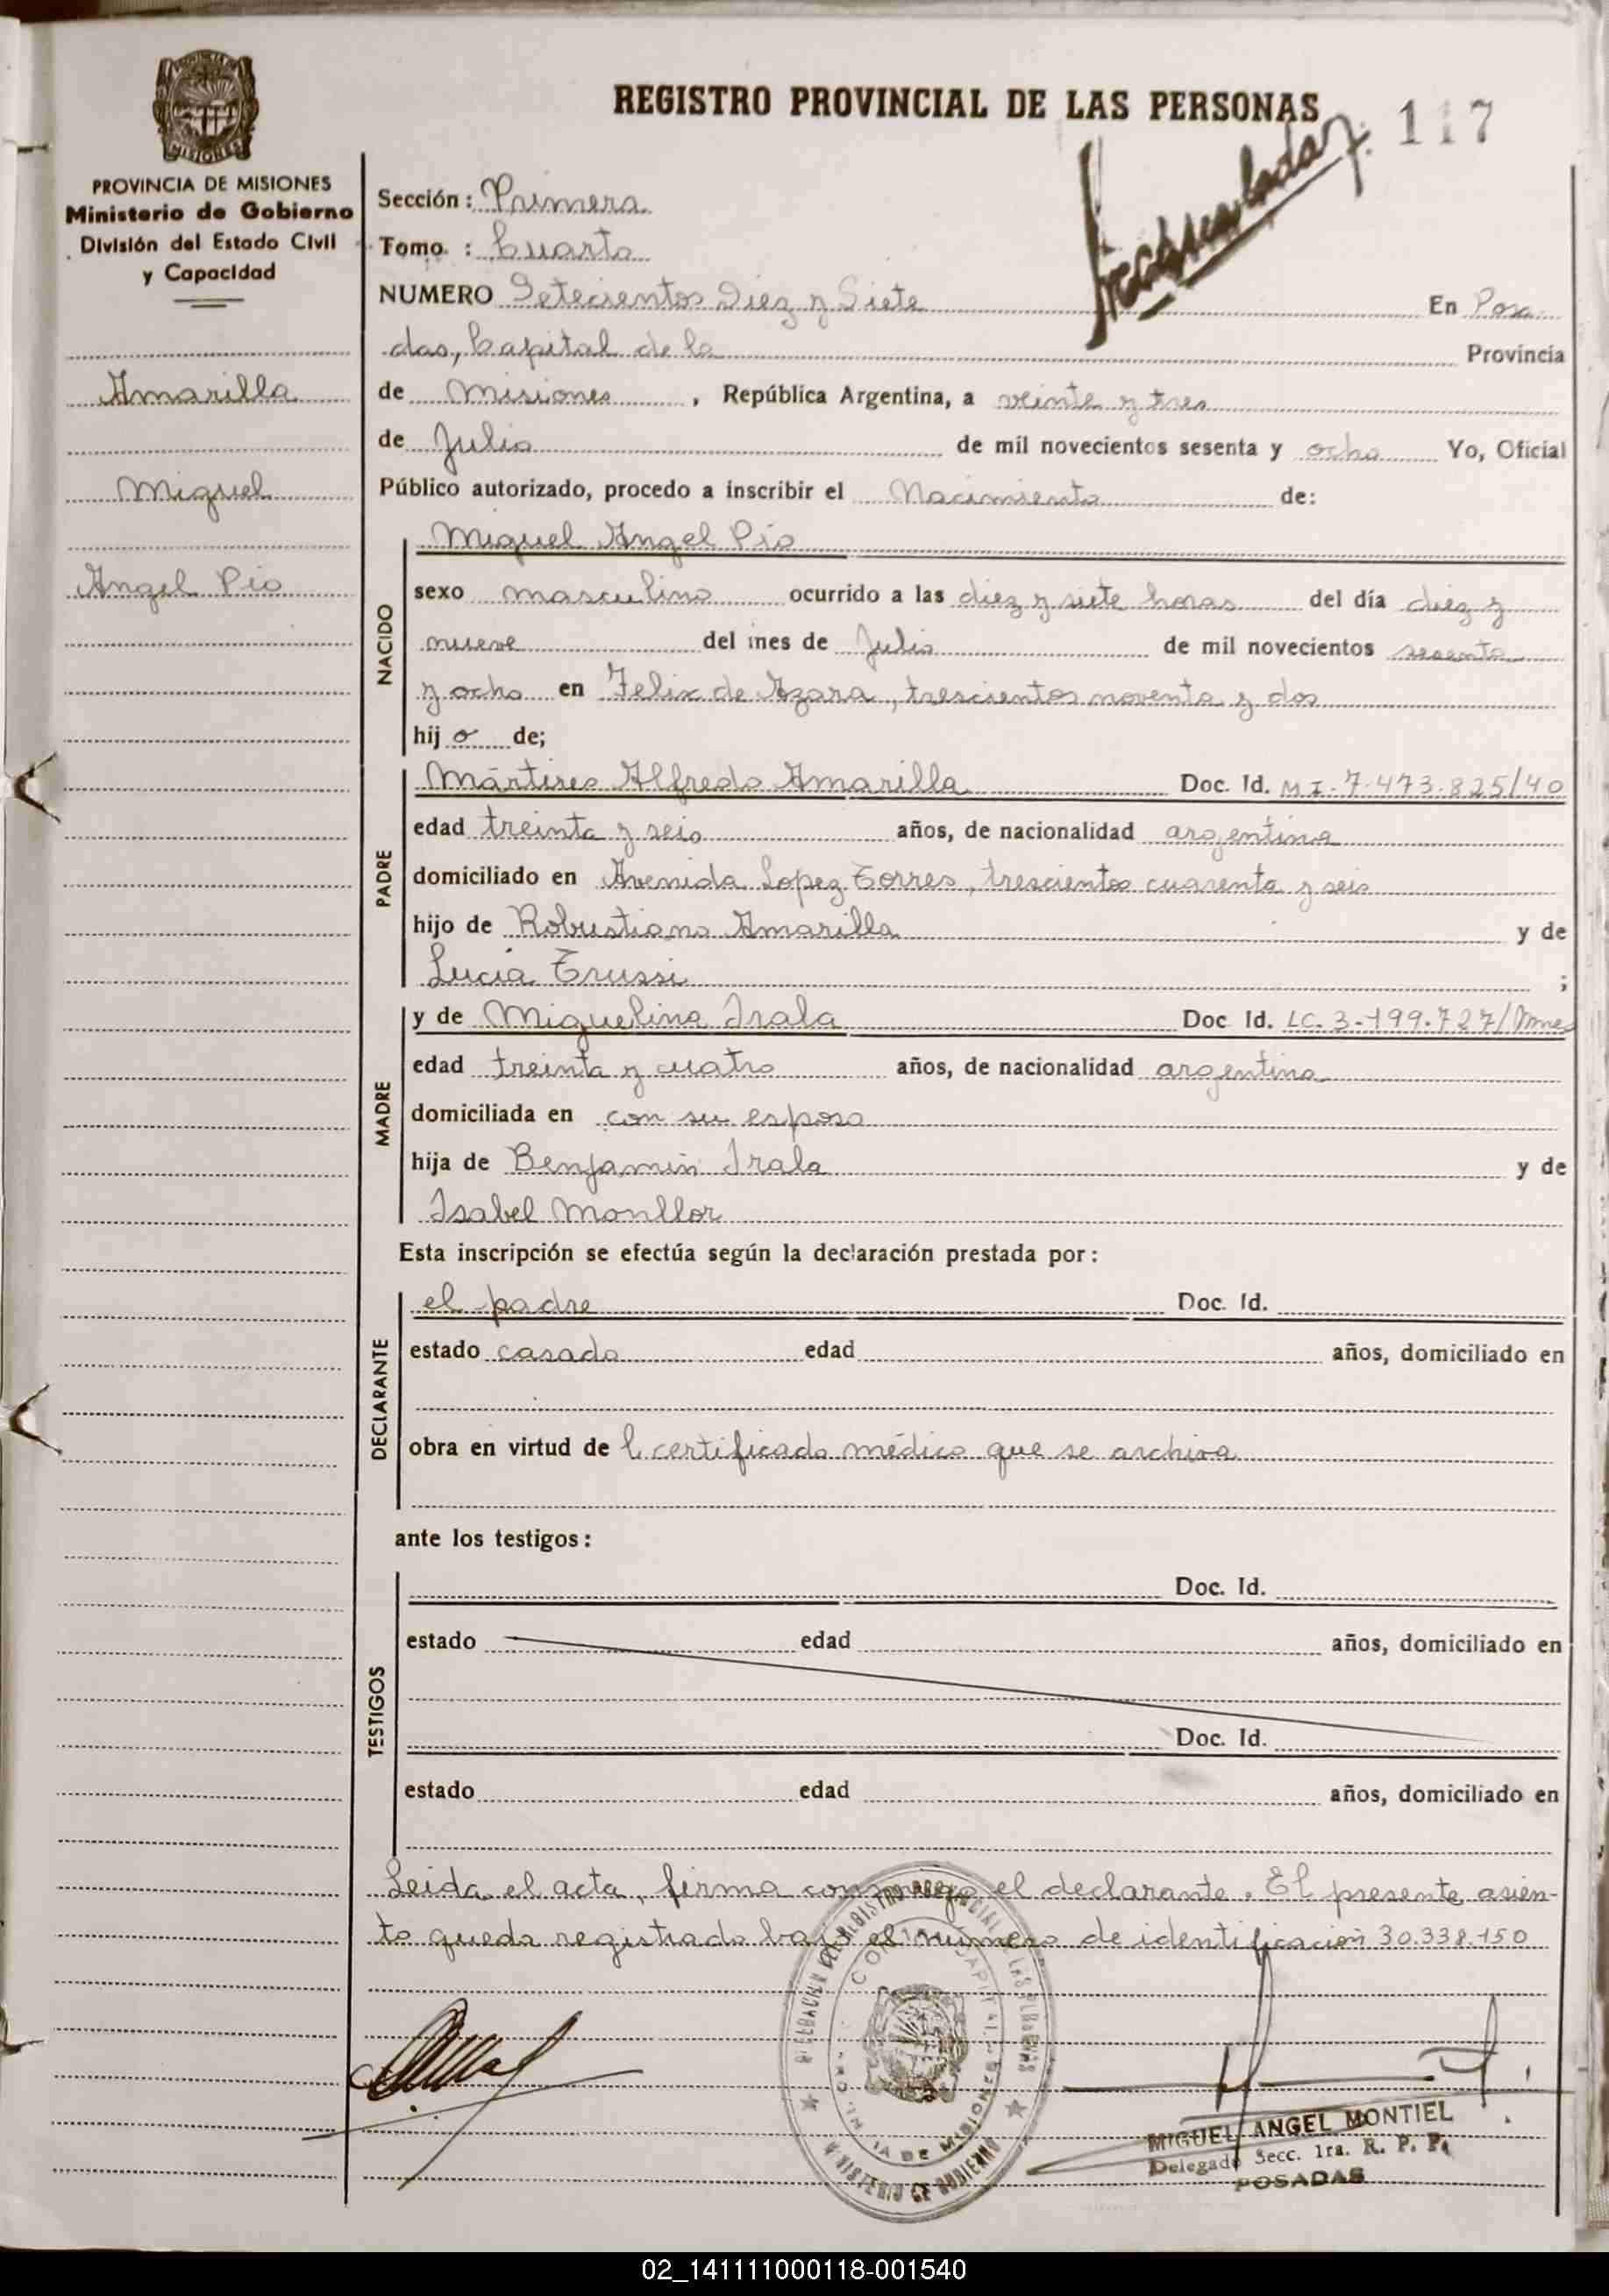 REGISTRO PROVINCIAL DE LAS PERSONAS
117
MISIONES
PROVINCIA DE MISIONES
Ministerio de Gobierno
División del Estado Civil
y Capacidad
Amarilla
Miguel
Angel Pio
Sección: Primera
Tomo : Cuarto
NUMERO Setecientos Diez y Siete En Posa-
das, Capital de la Provincia
de Misiones, República Argentina, a veinte y tres
de Julio de mil novecientos sesenta y ocho Yo, Oficial
Público autorizado, procedo a inscribir el Nacimiento de:
NACIDO
Miguel Angel Pio
sexo masculino ocurrido a las diez y siete horas del día diez y
nueve del mes de Julio de mil novecientos sesenta
y ocho en Felix de Azara, trescientos noventa y dos
hijo de;
PADRE
Mártires Alfredo Amarilla Doc. Id. M I. 7.473.825/40
edad treinta y seis años, de nacionalidad argentina
domiciliado en Avenida Lopez Torres, trescientos cuarenta y seis
hijo de Robustiano Amarilla y de
Lucía Trussi ;
MADRE
y de Miguelina Irala Doc Id. LC. 3.199.727/Mnes
edad treinta y cuatro años, de nacionalidad argentina
domiciliada en con su esposo
hija de Benjamin Irala y de
Isabel Monllor
Esta inscripción se efectúa según la declaración prestada por:
DECLARANTE
el padre Doc. Id.
estado casado edad años, domiciliado en
obra en virtud del certificado médico que se archiva
ante los testigos:
TESTIGOS
Doc. Id.
estado edad años, domiciliado en
Doc. Id.
estado edad años, domiciliado en
Leida el acta, firma conmigo el declarante. El presente asien-
to queda registrado bajo el número de identificación 30.338.150
MINISTERIO DE GOBIERNO
MIGUEL ANGEL MONTIEL
Delegado Secc. 1ra. R. P. P.
POSADAS
02_141111000118-001540